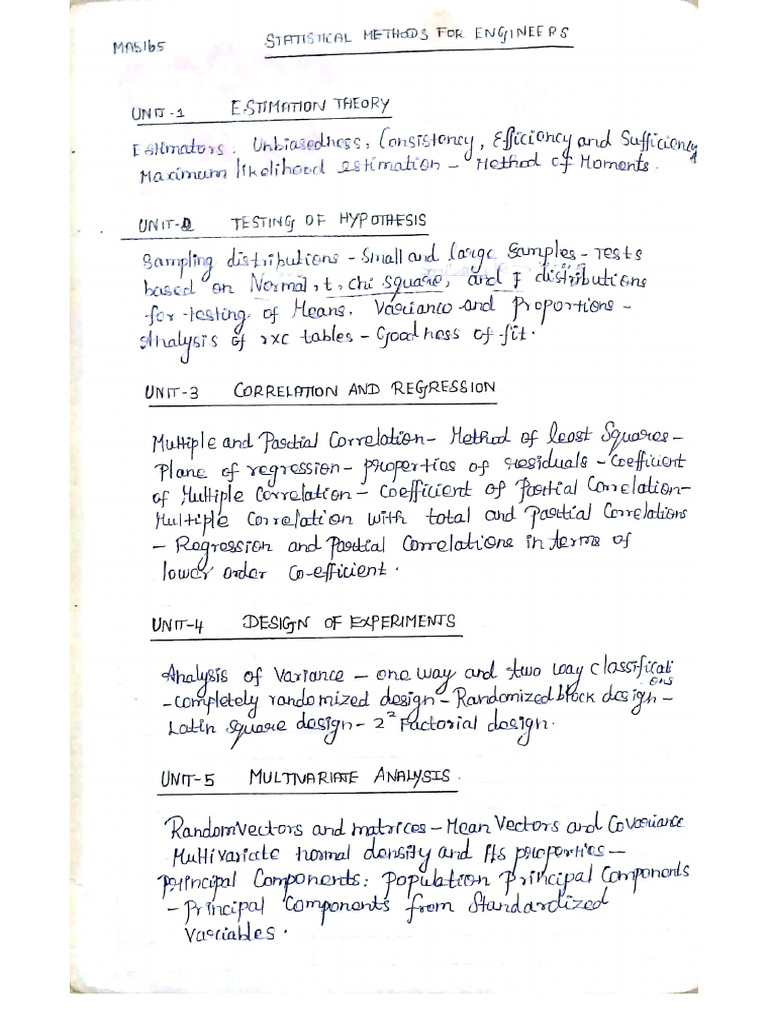 MA5165 STATISTICAL METHODS FOR ENGINEERS
UNIT-1 ESTIMATION THEORY
Estimators. Unbiasedness, Consistency, Efficiency and Sufficiency
Maximum likelihood estimation - Method of Moments.
UNIT-2 TESTING OF HYPOTHESIS
Sampling distributions - Small and large Samples - Tests
based on Normal, t, chi square, and F distributions
for testing of Means, Variance and Proportions -
Analysis of rxc tables - Goodness of fit.
UNIT-3 CORRELATION AND REGRESSION
Multiple and Partial Correlation - Method of least Squares -
Plane of regression - properties of residuals - Coefficient
of Multiple Correlation - Coefficient of Partial Correlation -
Multiple Correlation with total and Partial Correlations
- Regression and Partial Correlations in terms of
lower order co-efficient.
UNIT-4 DESIGN OF EXPERIMENTS
Analysis of Variance - one way and two way classifications
- completely randomized design - Randomized block design -
Latin square design - 2² Factorial design.
UNIT-5 MULTIVARIATE ANALYSIS.
Random Vectors and matrices - Mean Vectors and Covariance
Multivariate normal density and its properties -
Principal Components: Population Principal Components
- Principal Components from Standardized
Variables.